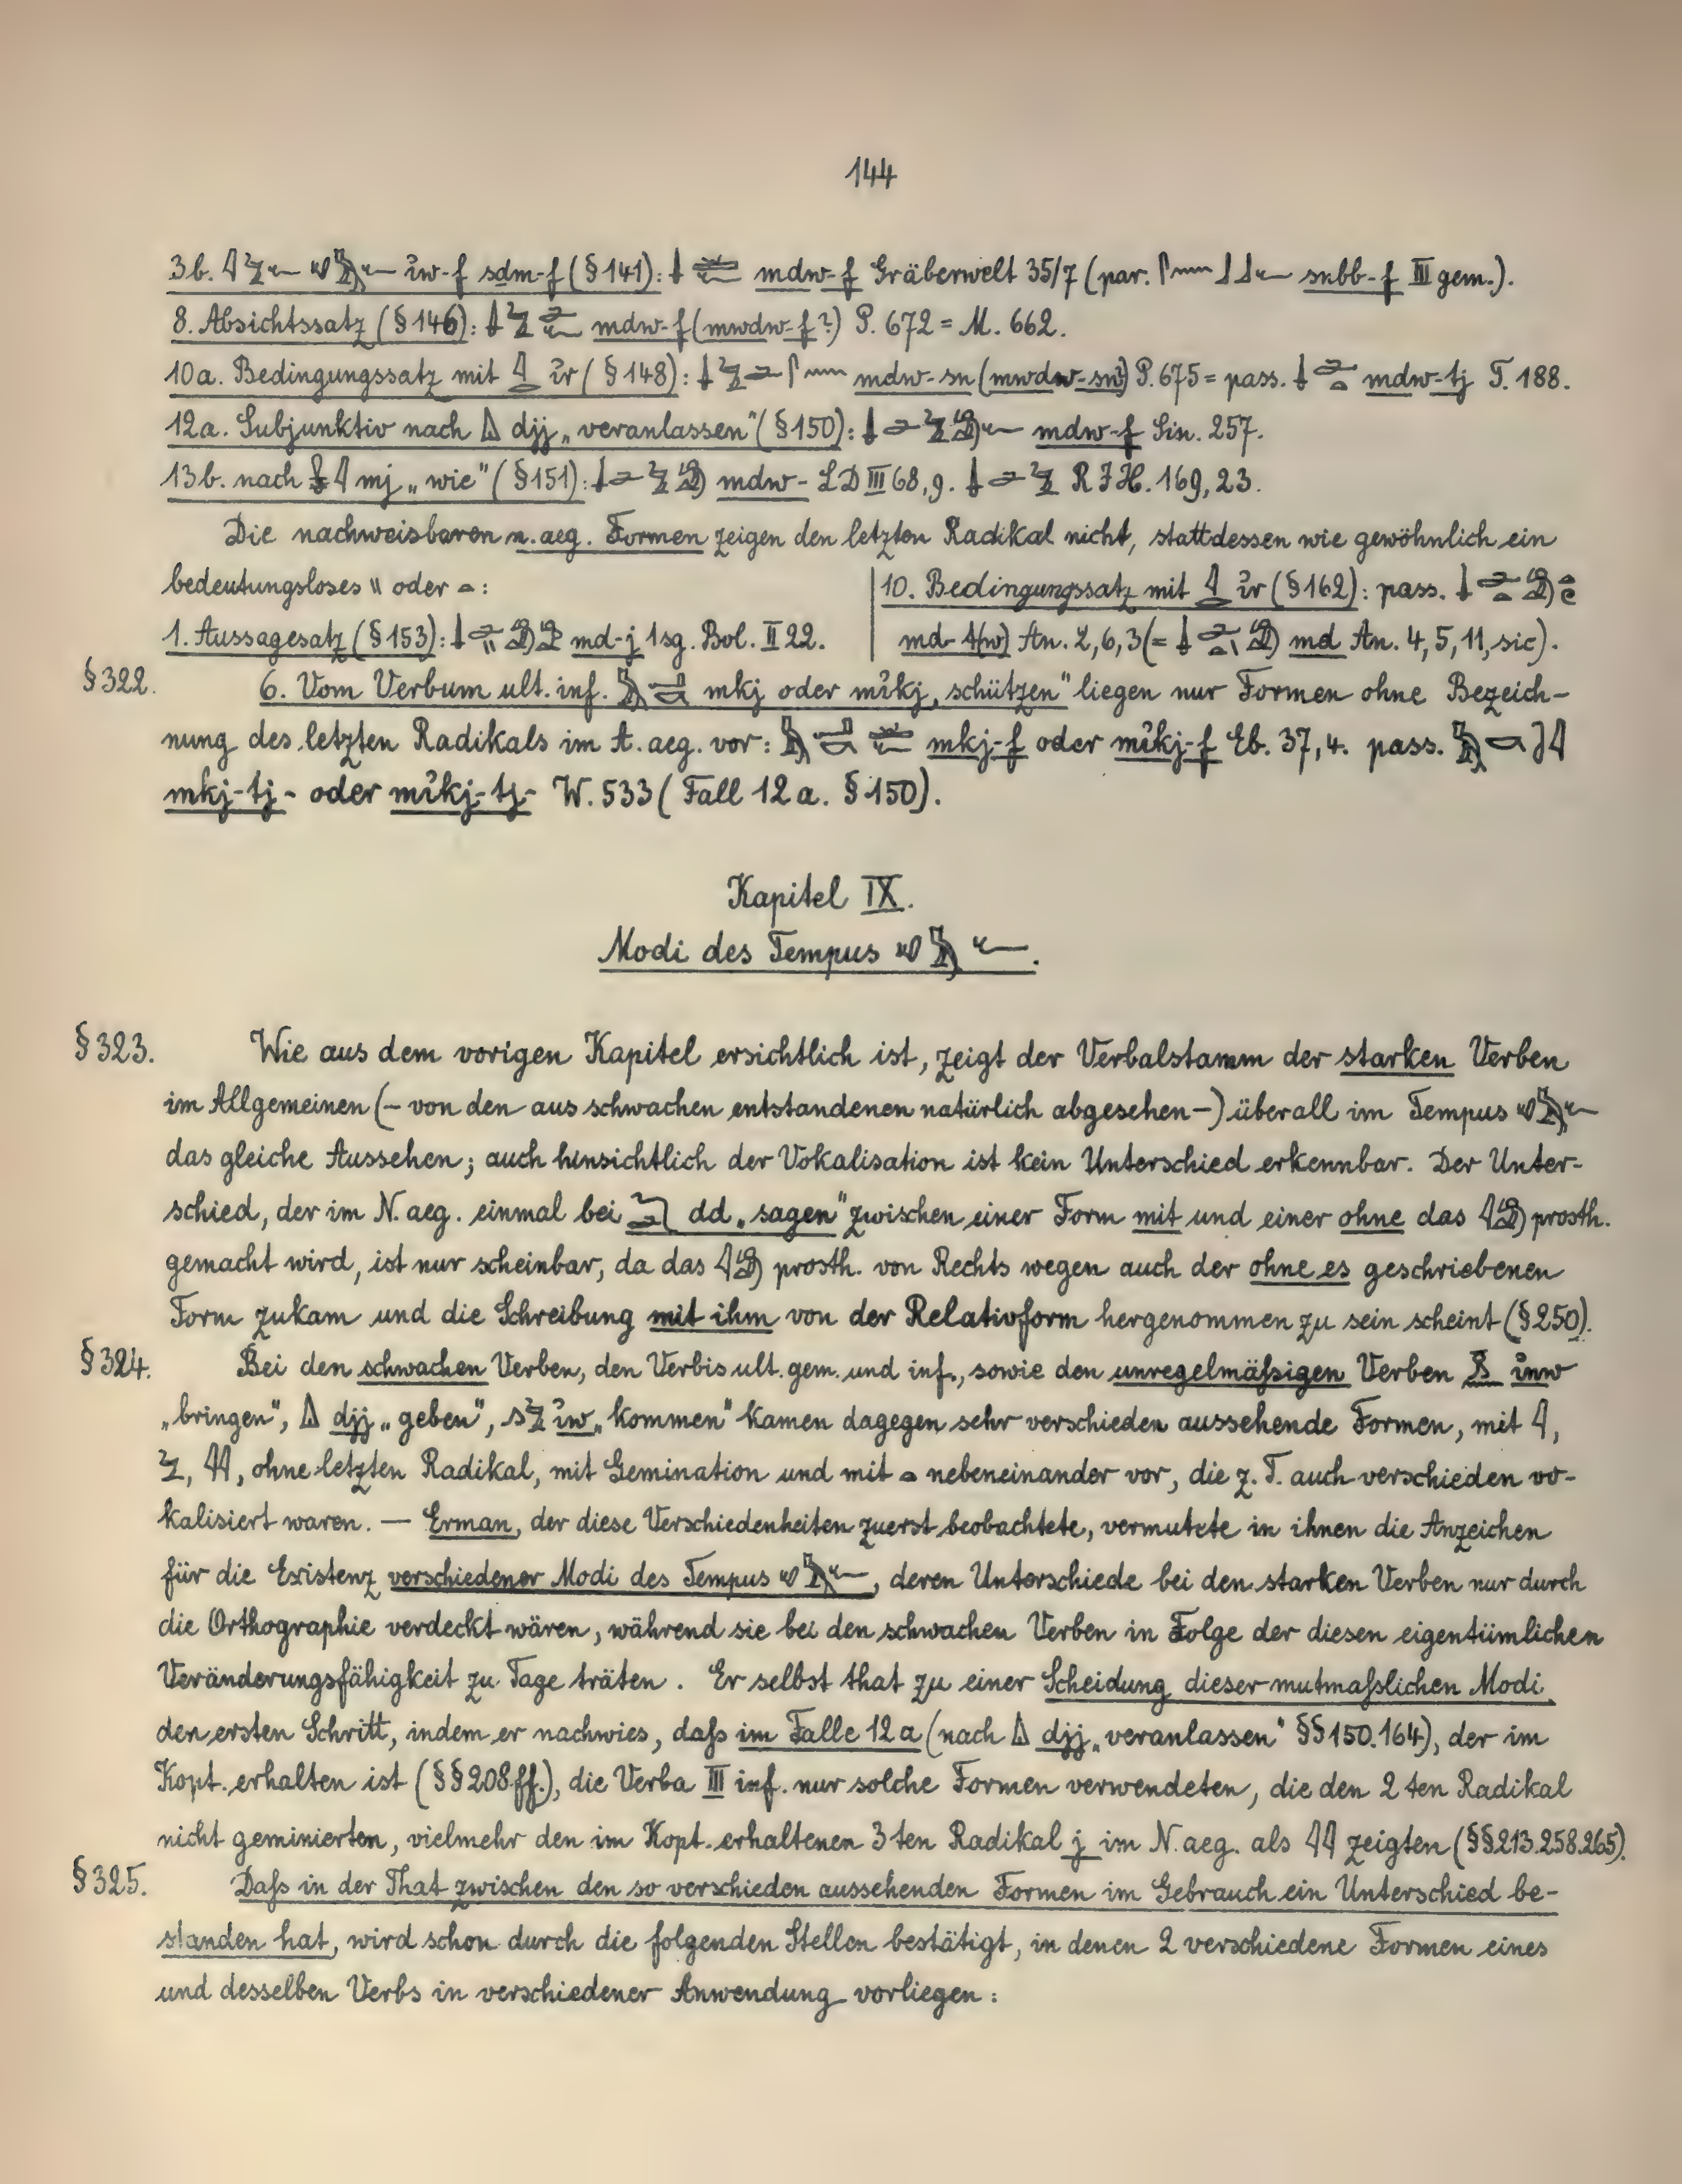 144
3b. iw-f sdm-f (§141): mdw-f Gräberwelt 35/7 (par. snbb-f III gem.).
8. Absichtssatz (§146): mdw-f (mwdw-f?) P. 672 = M. 662.
10a. Bedingungssatz mit ir (§148): mdw-sn (mwdw-sn?) P. 675 = pass. mdw-tj T. 188.
12a. Subjunktiv nach djj „veranlassen" (§150): mdw-f Sin. 257.
13b. nach mj „wie" (§151): mdw- LD III 68,9. R I H. 169, 23.
Die nachweisbaren n. aeg. Formen zeigen den letzten Radikal nicht, stattdessen wie gewöhnlich ein
bedeutungsloses \\ oder :
1. Aussagesatz (§153): md-j 1sg. Bol. II 22.
10. Bedingungssatz mit ir (§162): pass.
md-t(w) An. 2, 6, 3 (= md An. 4, 5, 11, sic).
§322. 6. Vom Verbum ult. inf. mkj oder mikj „schützen" liegen nur Formen ohne Bezeich-
nung des letzten Radikals im A. aeg. vor: mkj-f oder mikj-f Eb. 37, 4. pass.
mkj-tj- oder mikj-tj- W. 533 (Fall 12a. §150).
Kapitel IX.
Modi des Tempus .
§323. Wie aus dem vorigen Kapitel ersichtlich ist, zeigt der Verbalstamm der starken Verben
im Allgemeinen (– von den aus schwachen entstandenen natürlich abgesehen –) überall im Tempus
das gleiche Aussehen; auch hinsichtlich der Vokalisation ist kein Unterschied erkennbar. Der Unter-
schied, der im N. aeg. einmal bei dd „sagen" zwischen einer Form mit und einer ohne das prosth.
gemacht wird, ist nur scheinbar, da das prosth. von Rechts wegen auch der ohne es geschriebenen
Form zukam und die Schreibung mit ihm von der Relativform hergenommen zu sein scheint (§250).
§324. Bei den schwachen Verben, den Verbis ult. gem. und inf., sowie den unregelmäßigen Verben inw
„bringen", djj „geben", iw „kommen" kamen dagegen sehr verschieden aussehende Formen, mit ,
, , ohne letzten Radikal, mit Gemination und mit nebeneinander vor, die z. T. auch verschieden vo-
kalisiert waren. — Erman, der diese Verschiedenheiten zuerst beobachtete, vermutete in ihnen die Anzeichen
für die Existenz verschiedener Modi des Tempus , deren Unterschiede bei den starken Verben nur durch
die Orthographie verdeckt wären, während sie bei den schwachen Verben in Folge der diesen eigentümlichen
Veränderungsfähigkeit zu Tage träten. Er selbst that zu einer Scheidung dieser mutmaßlichen Modi
den ersten Schritt, indem er nachwies, daß im Falle 12a (nach djj „veranlassen" §§150.164), der im
Kopt. erhalten ist (§§208ff.), die Verba III inf. nur solche Formen verwendeten, die den 2ten Radikal
nicht geminierten, vielmehr den im Kopt. erhaltenen 3ten Radikal j im N. aeg. als zeigten (§§213.258.265).
§325. Daß in der That zwischen den so verschieden aussehenden Formen im Gebrauch ein Unterschied be-
standen hat, wird schon durch die folgenden Stellen bestätigt, in denen 2 verschiedene Formen eines
und desselben Verbs in verschiedener Anwendung vorliegen: